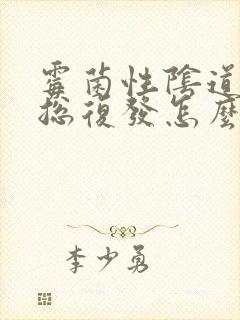 霉菌性陰道
總復發怎麼
李少勇